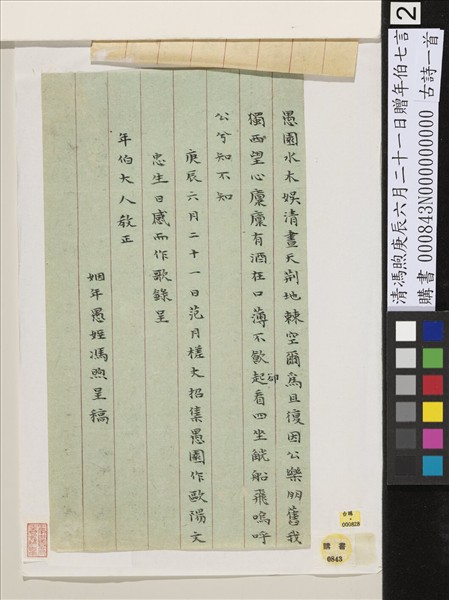 愚園水木娛清晝天荊地棘空爾為且復因公樂朋舊我
獨西望心廩廩有酒在口薄不飲起看四坐觥船飛嗚呼
卻
公兮知不知
庚辰六月二十一日范月槎大招集愚園作歐陽文
忠生日感而作歌錄呈
年伯大人教正
姻年愚姪馮煦呈稿
2
清馮煦庚辰六月二十一日贈年伯七言古詩一首
購書 000843N000000000
台購
000828
購書
0843